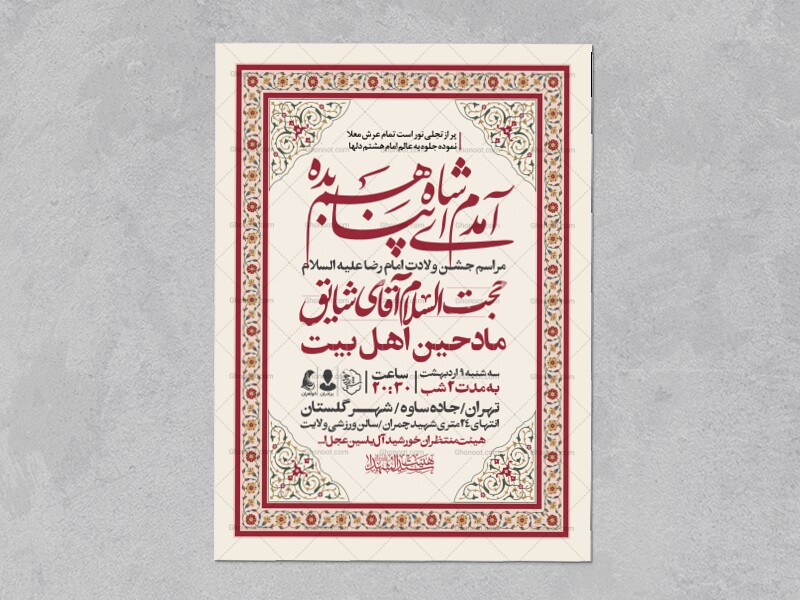 پر از تجلی نور است تمام عرش معلا
نموده جلوه به عالم امام هشتم دلها
آمدم ای شاه پناهم بده
مراسم جشن ولادت امام رضا علیه السلام
حجت السلام آقای شایق
مادحین اهل بیت
سه شنبه ۹ اردیبهشت
به مدت ۲ شب
ساعت
۲۰:۳۰
برادران
خواهران
تهران/جاده ساوه/شهر گلستان
انتهای ۲۴ متری شهید چمران/سالن ورزشی ولایت
هیئت منتظران خورشید آل یاسین عجل ا...
Ghonoot.com